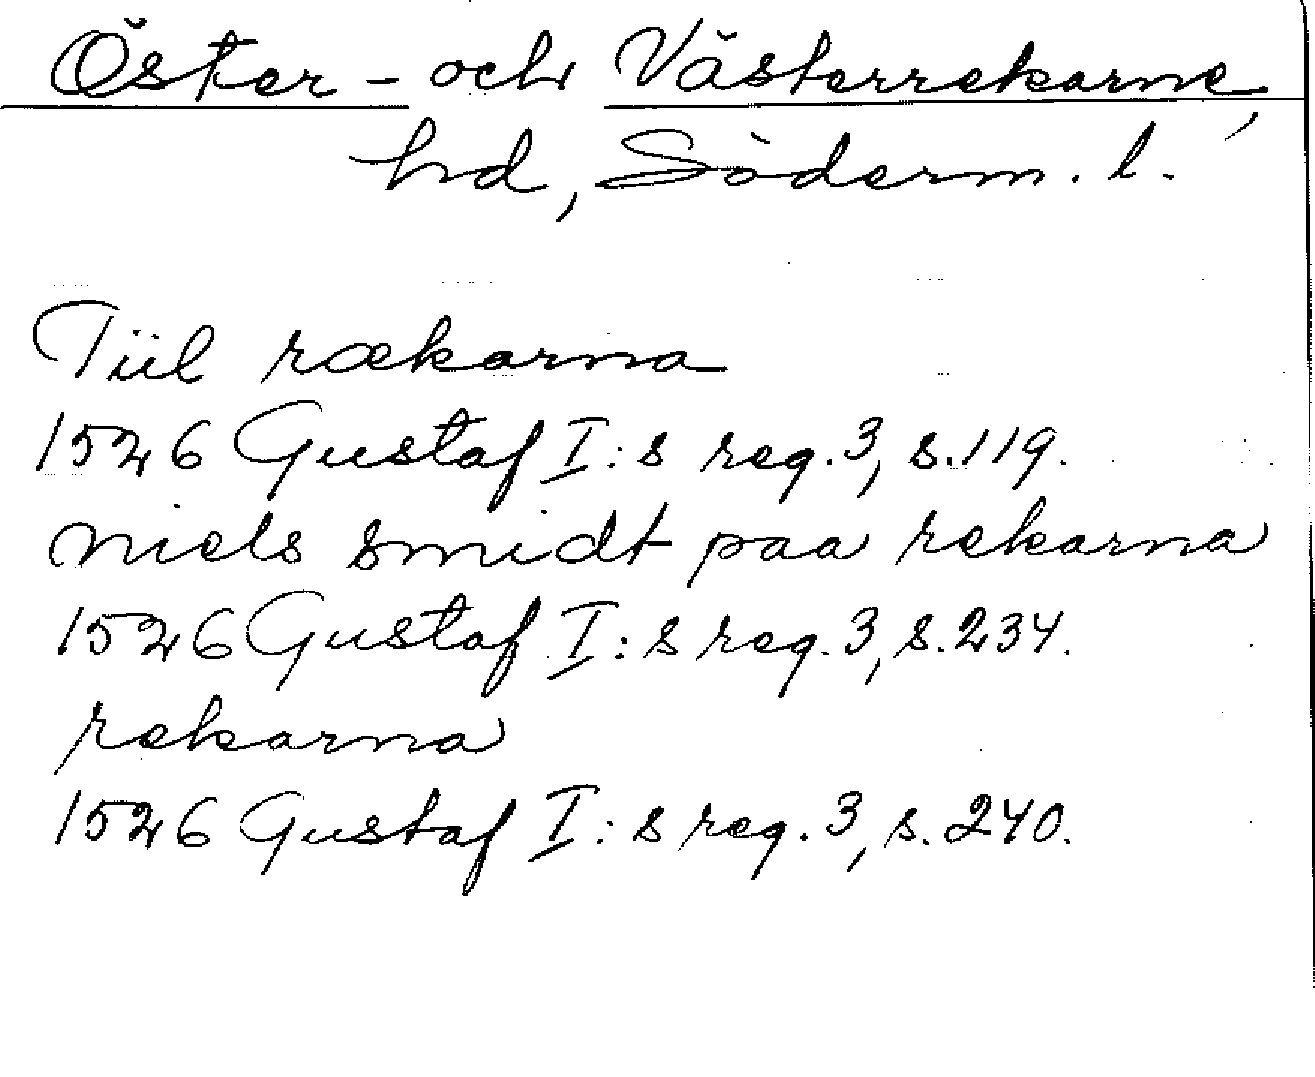 Öster- och Västerrekarne,
hd, Söderm. l.
Tiil rækarna
1526 Gustaf I:s reg. 3, s. 119.
niels smidt paa rekarna
1526 Gustaf I:s reg. 3, s. 234.
rekarna
1526 Gustaf I:s reg. 3, s. 240.